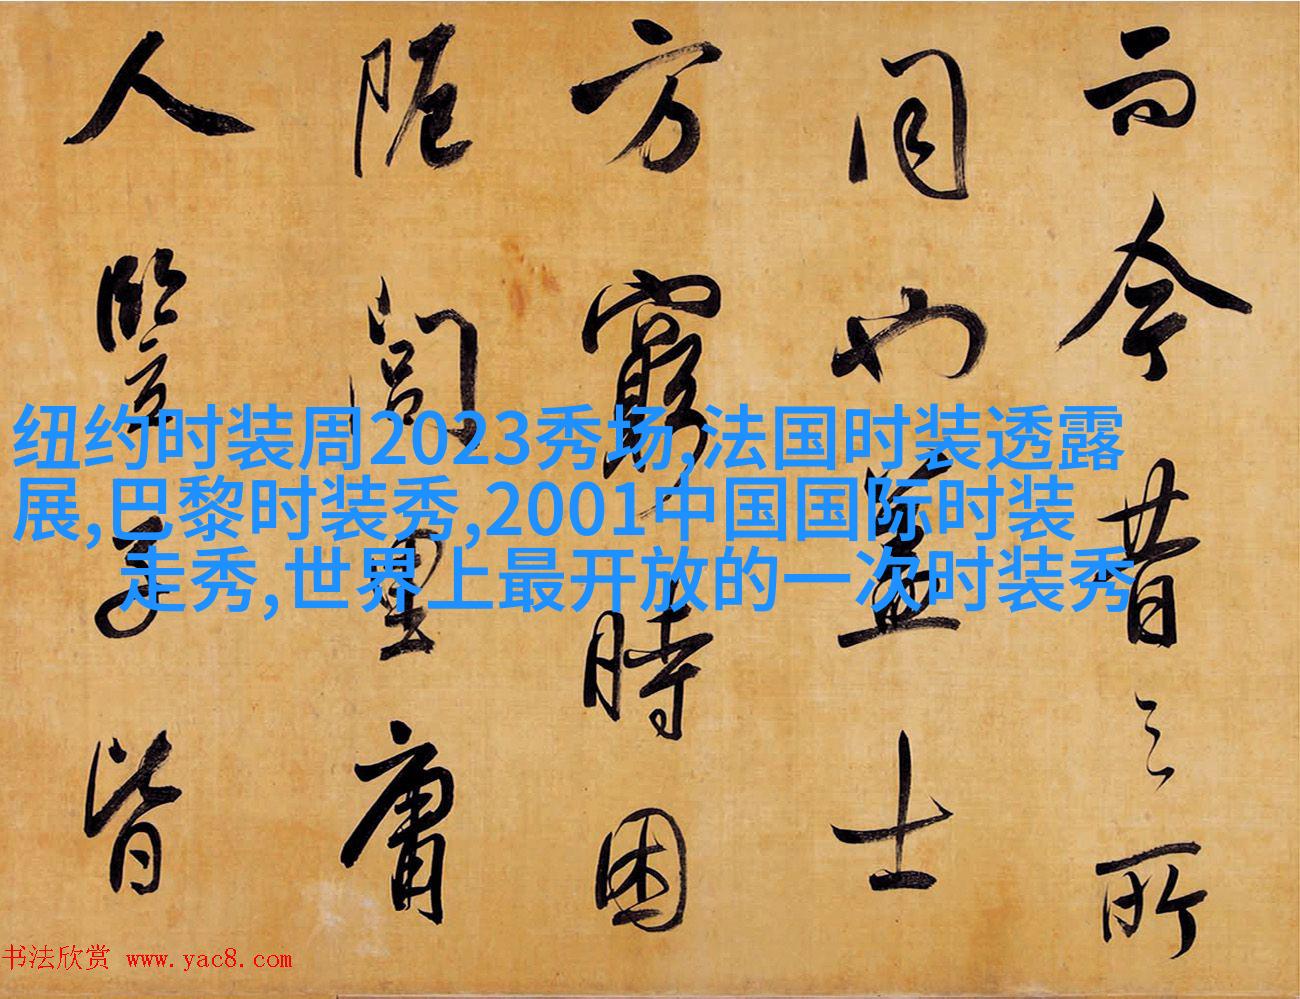 而今昔之所
同也蓋士
方窮時困
阨閭里庸
人豎子皆
纽约时装周2023秀场,法国时装透露
展,巴黎时装秀,2001中国国际时装
走秀,世界上最开放的一次时装秀
书法欣赏 www.yac8.com